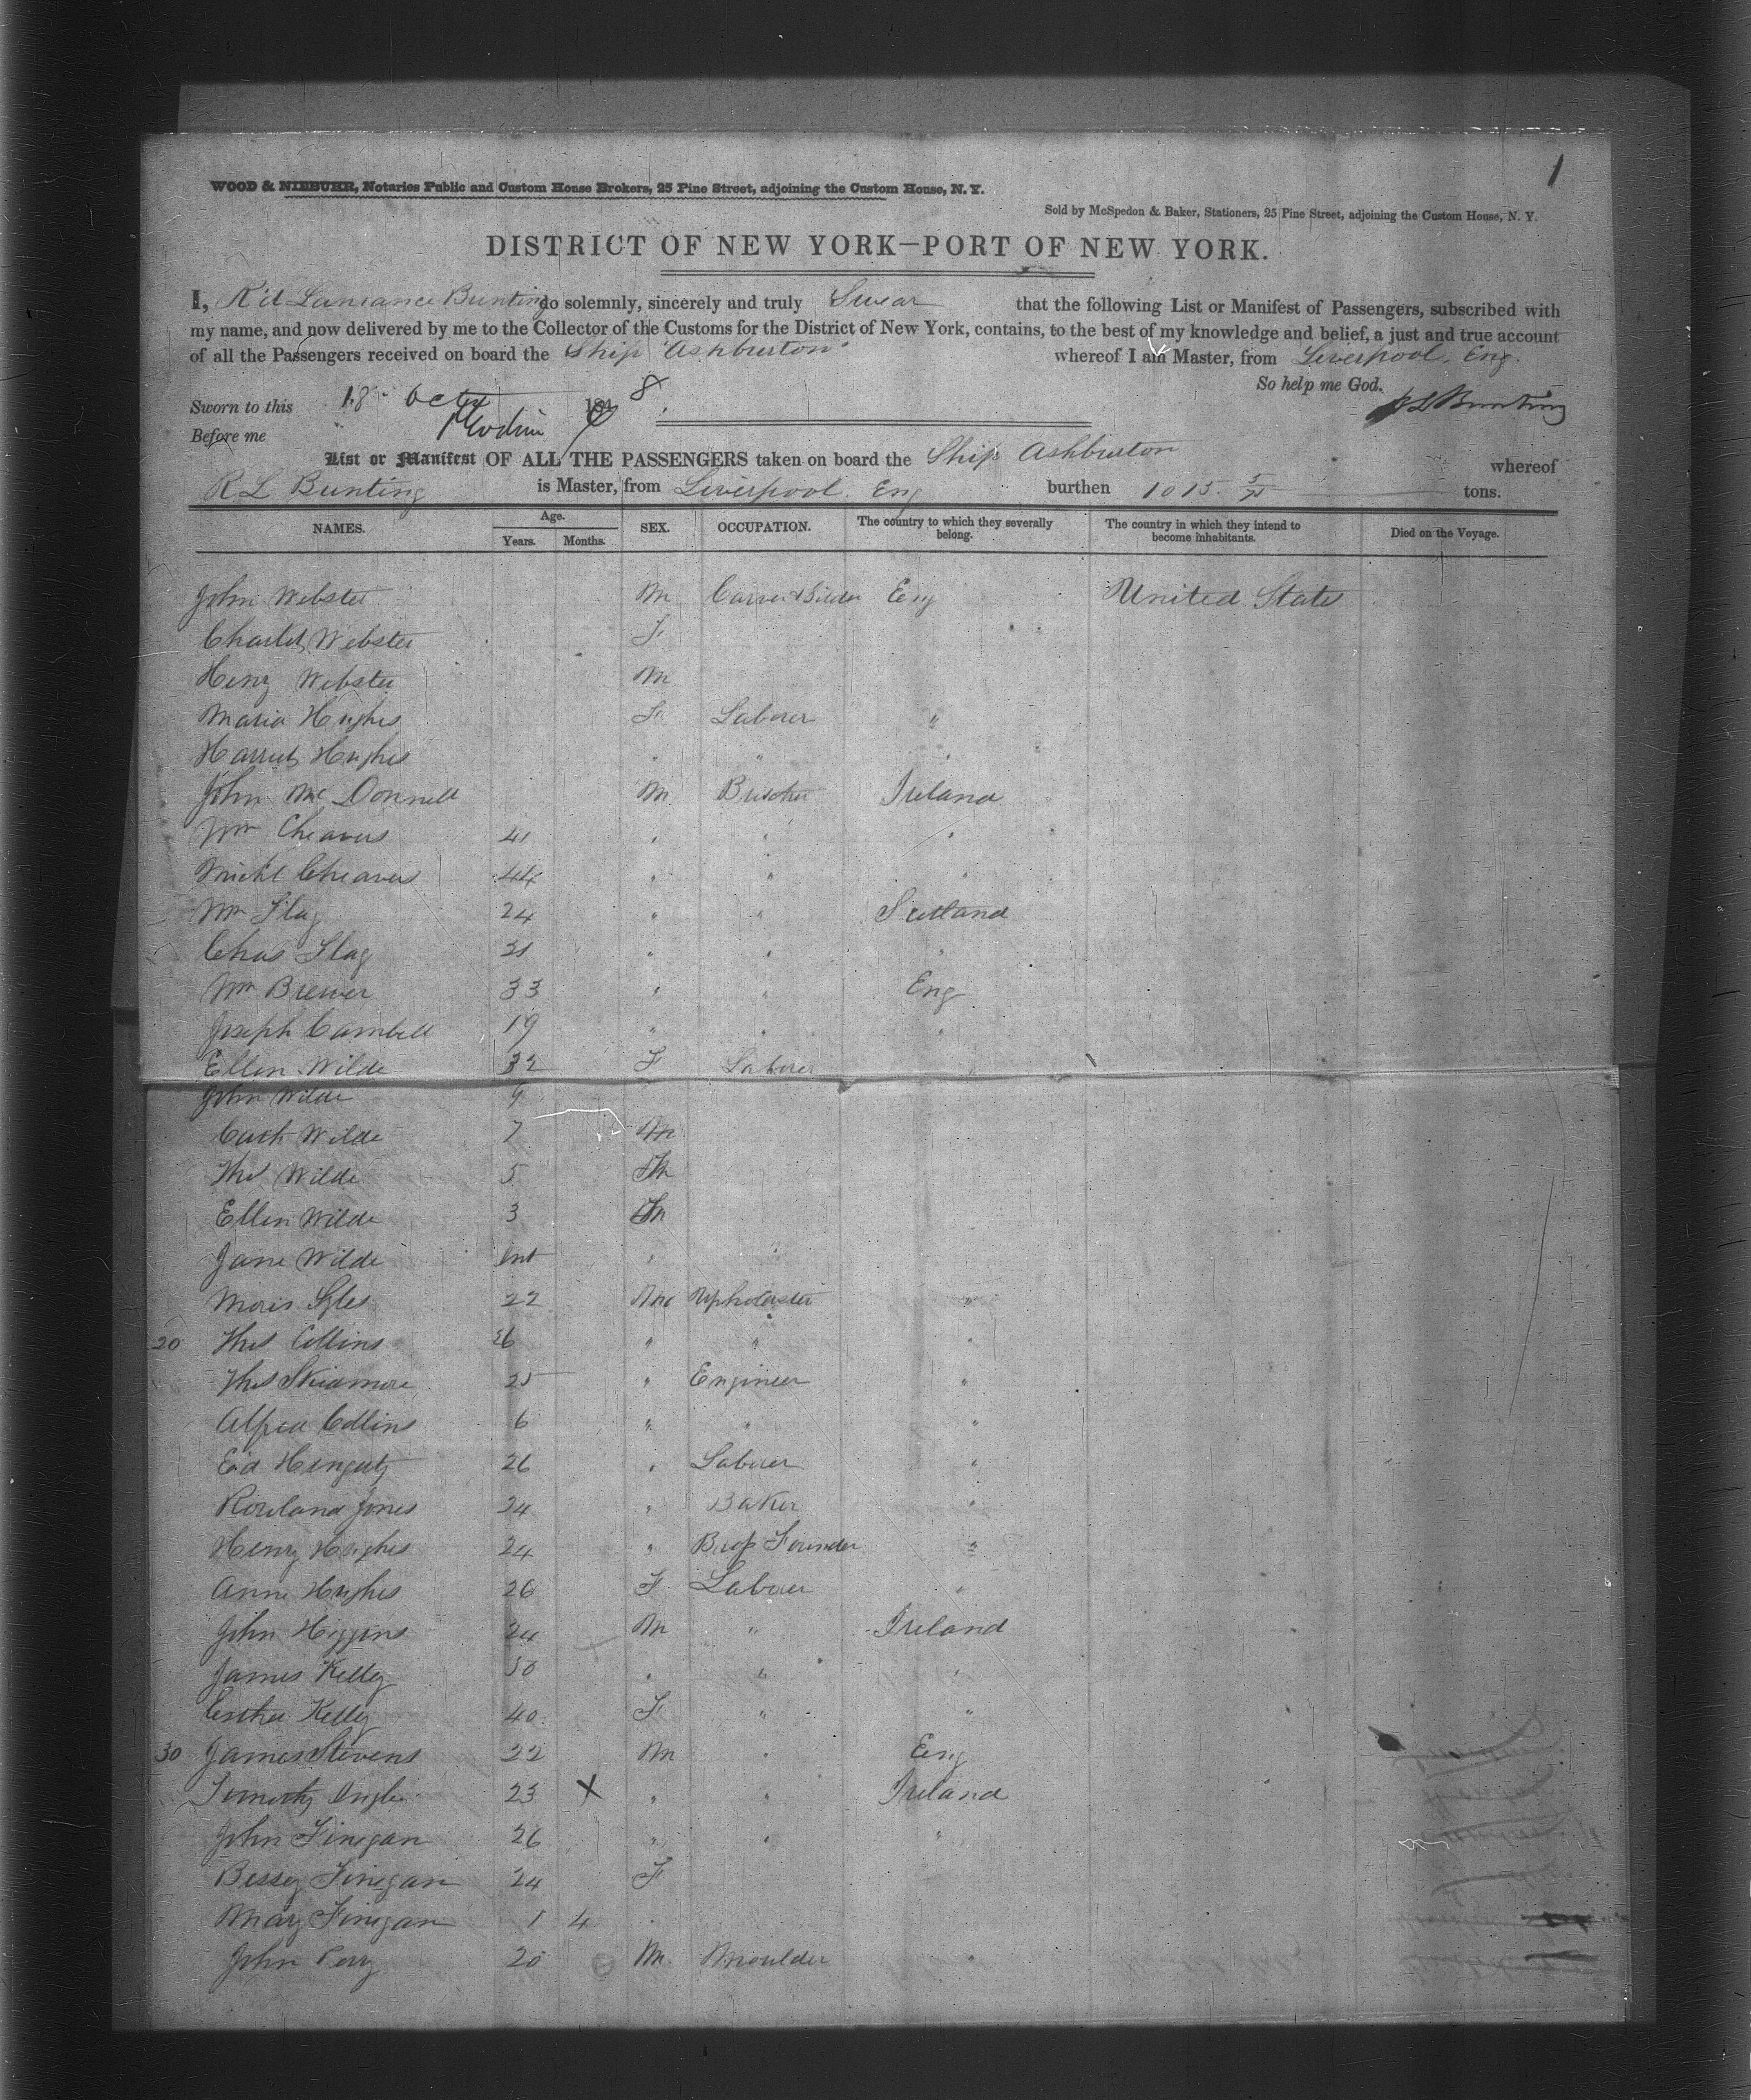 1
WOOD & NIEBUHR, Notaries Public and Custom House Brokers, 25 Pine Street, adjoining the Custom House, N. Y.
Sold by McSpedon & Baker, Stationers, 25 Pine Street, adjoining the Custom House, N. Y.
DISTRICT OF NEW YORK—PORT OF NEW YORK.
I, R'd Bunting do solemnly, sincerely and truly Swear that the following List or Manifest of Passengers, subscribed with
my name, and now delivered by me to the Collector of the Customs for the District of New York, contains, to the best of my knowledge and belief, a just and true account
of all the Passengers received on board the Ship "Ashburton" whereof I am Master, from Liverpool, Eng.
So help me God.
Sworn to this 18 Octr 184 8. R L Bunting
Before me
List or Manifest OF ALL THE PASSENGERS taken on board the Ship Ashburton whereof
R L Bunting is Master, from Liverpool Eng burthen 1015 tons.
NAMES. Age. Years. Months. SEX. OCCUPATION. The country to which they severally belong. The country in which they intend to become inhabitants. Died on the Voyage.
John Webster M Carver & Gilder Eng United States
Charlot Webster F
Henry Webster M
Maria Hughes F Laborer "
Harriet Hughes " " "
John McDonnell M Butcher Ireland
Wm Cheavers 41 " " "
Michl Cheavers 44 " " "
Wm Flag 24 " " Scotland
Chas Flag 21 " " "
Wm Brewer 33 " " Eng
Joseph Cambell 19 " " "
Ellen Wilde 32 F Laborer "
John Wilde 9
Cath Wilde 7 M
Thos Wilde 5
Ellen Wilde 3
Jane Wilde Inf " "
Moris Syles 22 M Upholster "
20 Thos Collins 26 " " "
Thos Skidmore 25 " Engineer "
Alfred Collins 6 " " "
Ed 26 " Laborer "
Rowland Jones 24 " Baker "
Henry Hughes 24 " Brass Founder "
Anne Hughes 26 F Laborer "
John Higgins 24 M " Ireland
James Kelly 50 " " "
Esther Kelly 40 F " "
30 James Stevens 22 M " Eng
Timothy 23 X " " Ireland
John Finigan 26 " " "
Bessey Finigan 24 F
Mary Finigan 1 4 "
John Perry 20 M Moulder "